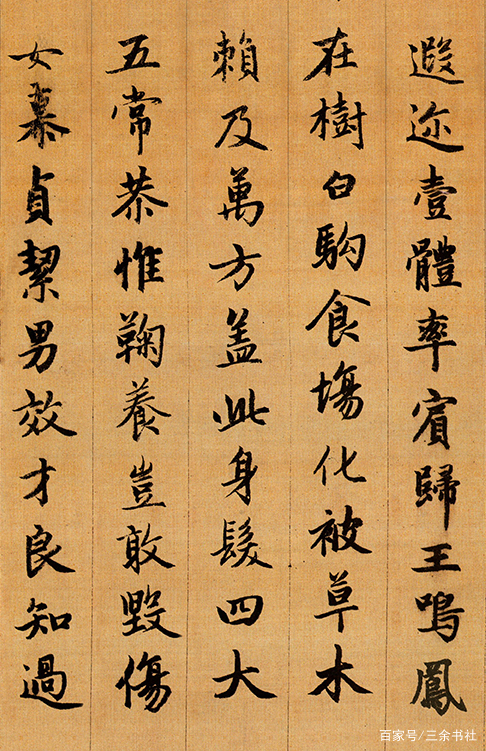 遐迩壹體率賓歸王鳴鳳
在樹白駒食場化被草木
賴及萬方盖此身髮四大
五常恭惟鞠養豈敢毀傷
女慕貞絜男效才良知過
百家号/三余书社